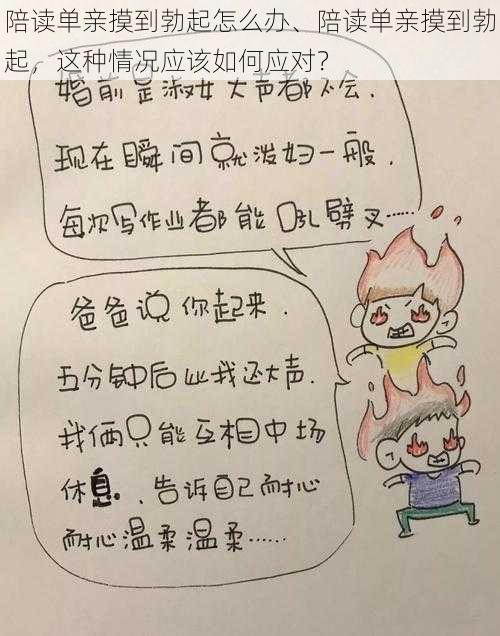 陪读单亲摸到勃起怎么办、陪读单亲摸到勃
起，这种情况应该如何应对？
婚前是淑女大声都不会.
现在瞬间就泼妇一般.
每次写作业都能吼劈叉……
爸爸说你起来.
五分钟后比我还大声.
我俩只能互相中场
休息.、告诉自己耐心
耐心温柔温柔……